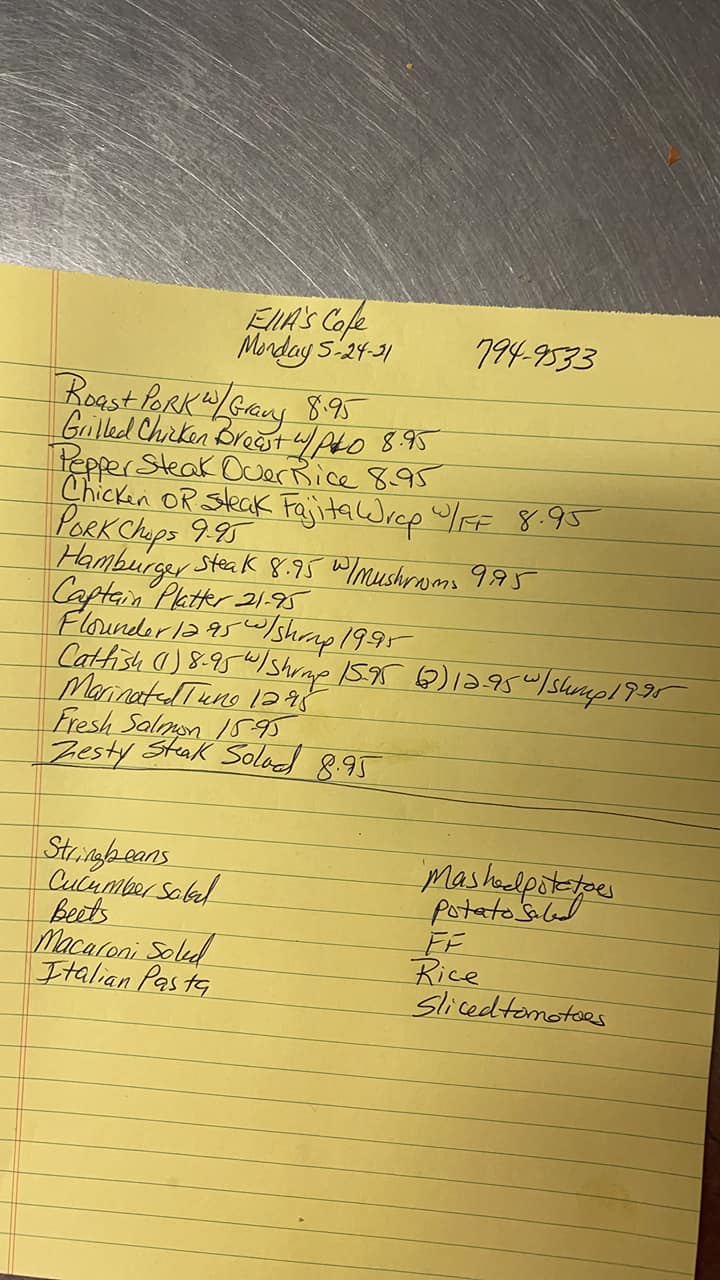 EllA's Cafe
Monday 5-24-21 794-9533
Roast PORK w/Gravy 8.95
Grilled Chicken Breast w/P&O 8.95
Pepper Steak Over Rice 8.95
Chicken OR Steak Fajita Wrap w/FF 8.95
PORK Chops 9.95
Hamburger Steak 8.95 w/Mushrooms 9.95
Captain Platter 21.95
Flounder 12.95 w/shrimp 19.95
Catfish (1) 8.95 w/shrimp 15.95 (2) 12.95 w/shrimp 19.95
Marinated Tuna 12.95
Fresh Salmon 15.95
Zesty Steak Salad 8.95
Stringbeans
Cucumber Salad
Beets
Macaroni Salad
Italian Pasta
Mashedpotatoes
Potato Salad
FF
Rice
Slicedtomatoes